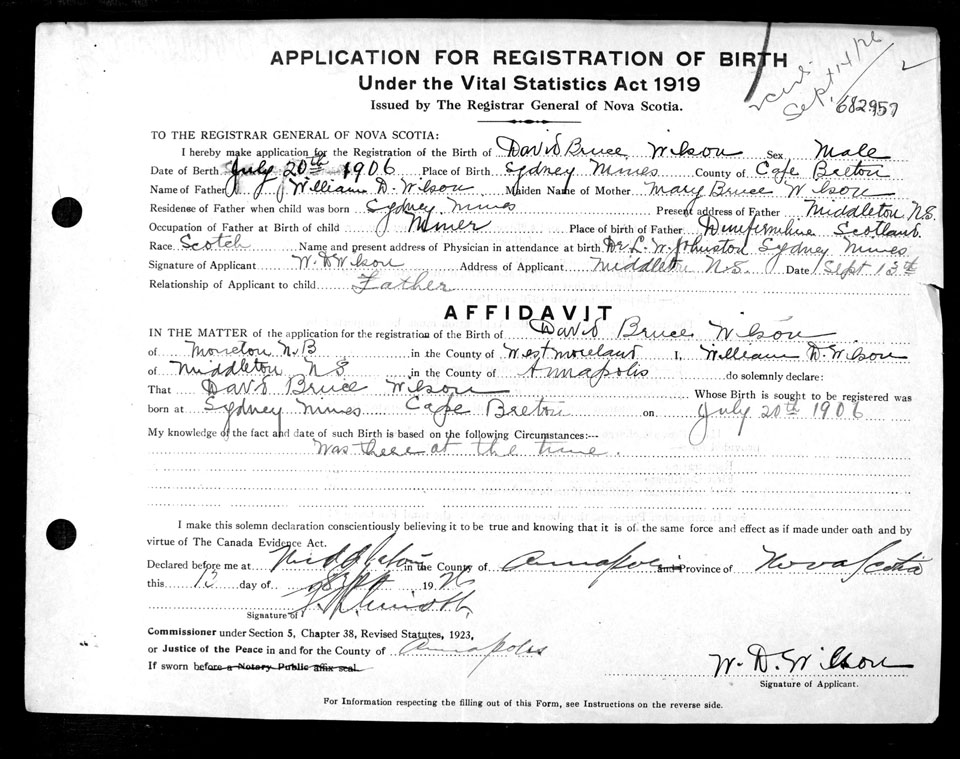 APPLICATION FOR REGISTRATION OF BIRTH
Under the Vital Statistics Act 1919
Issued by The Registrar General of Nova Scotia.
Sept 14/26
2
682957
TO THE REGISTRAR GENERAL OF NOVA SCOTIA:
I hereby make application for the Registration of the Birth of David Bruce Wilson Sex Male
Date of Birth July 20th 1906 Place of Birth Sydney Mines County of Cape Breton
Name of Father William D. Wilson Maiden Name of Mother Mary Bruce Wilson
Residence of Father when child was born Sydney Mines Present address of Father Middleton N.S.
Occupation of Father at Birth of child Miner Place of birth of Father Dunfermline Scotland.
Race Scotch Name and present address of Physician in attendance at birth Dr. L. W. Johnston Sydney Mines
Signature of Applicant W. D Wilson Address of Applicant Middleton N.S. Date Sept 13th
Relationship of Applicant to child Father
AFFIDAVIT
IN THE MATTER of the application for the registration of the Birth of David Bruce Wilson
of Moncton N.B in the County of Westmorland I, William D. Wilson
of Middleton N S in the County of Annapolis do solemnly declare:
That David Bruce Wilson Whose Birth is sought to be registered was
born at Sydney Mines Cape Breton on July 20th 1906
My knowledge of the fact and date of such Birth is based on the following Circumstances:--
Was there at the time.
I make this solemn declaration conscientiously believing it to be true and knowing that it is of the same force and effect as if made under oath and by
virtue of The Canada Evidence Act.
Declared before me at Middleton in the County of Annapolis and Province of Nova Scotia
this 13 day of Sept 1926
Signature of
Commissioner under Section 5, Chapter 38, Revised Statutes, 1923,
or Justice of the Peace in and for the County of Annapolis
If sworn before a Notary Public affix seal.
W. D. Wilson
Signature of Applicant.
For Information respecting the filling out of this Form, see Instructions on the reverse side.